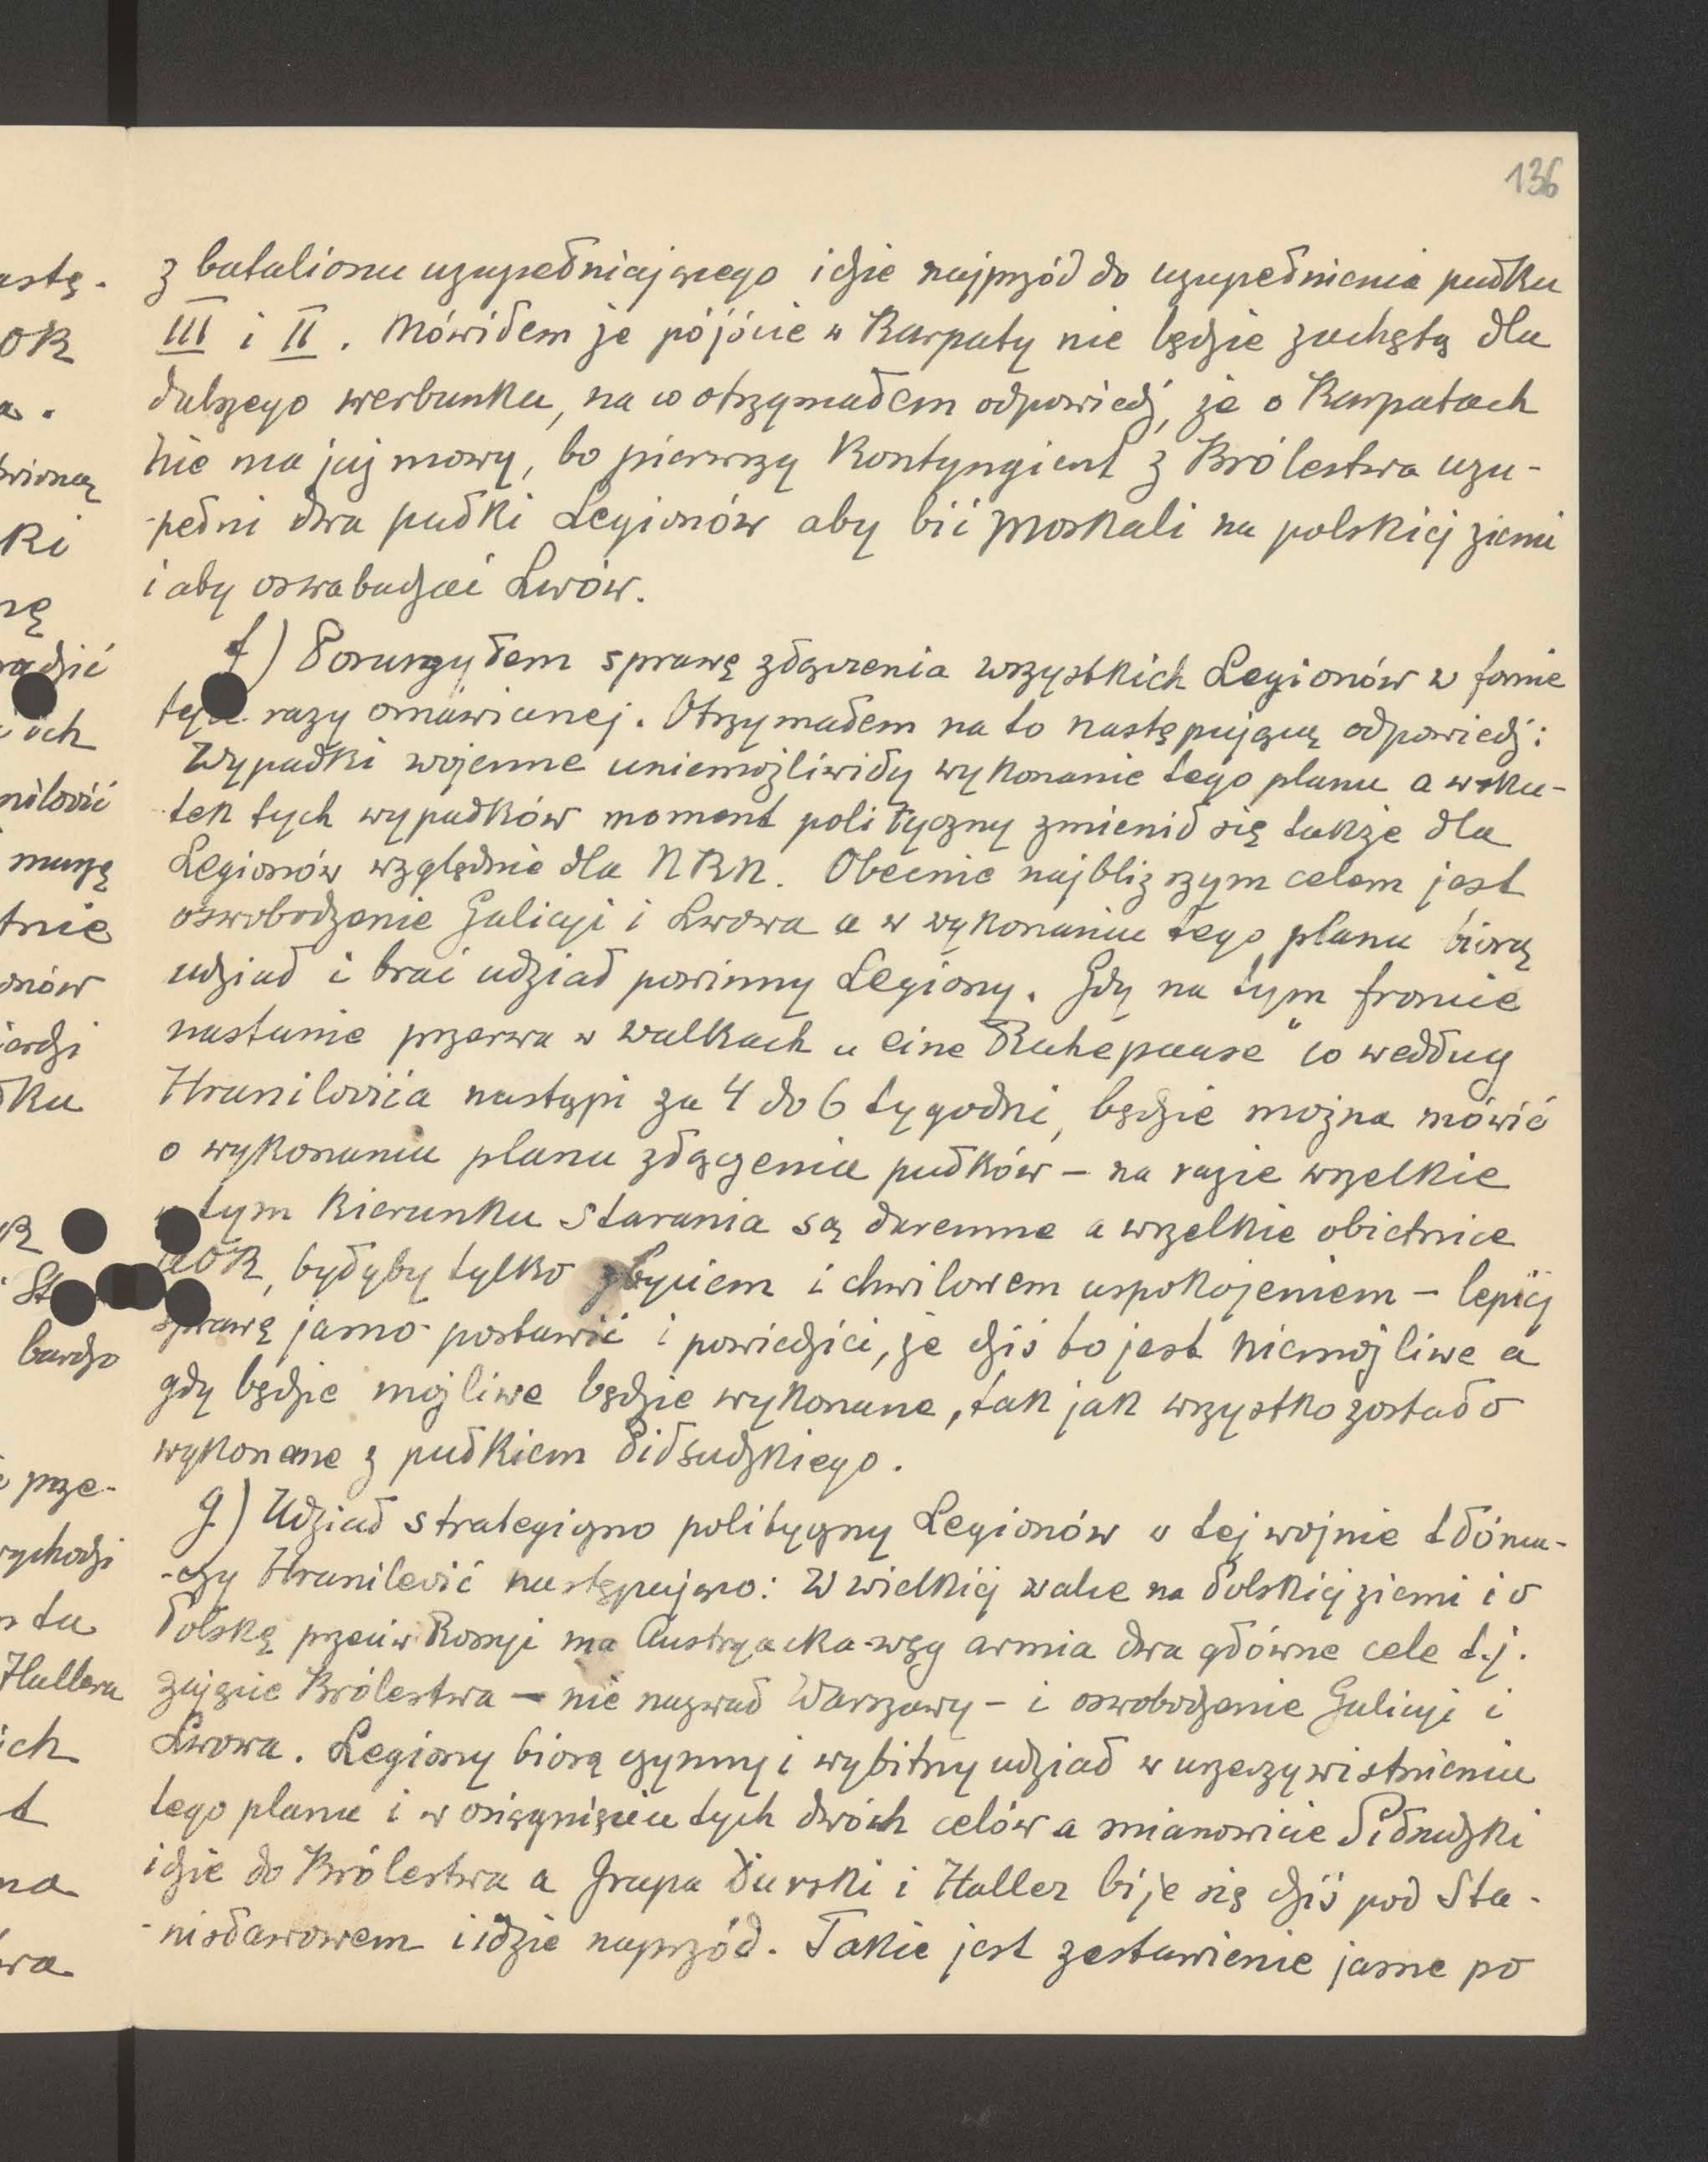 136
z batalionu uzupełniającego idzie najprzód do uzupełnienia pułku
III i II. Mówiłem że pójście w Karpaty nie będzie zachętą dla
dalszego werbunku, na co otrzymałem odpowiedź, że o Karpatach
nie ma już mowy, bo pierwszy Kontyngient z Królestwa uzu-
-pełni dwa pułki Legionów aby bić Moskali na polskiej ziemi
i aby oswabadzać Lwów.
f) Poruszyłem sprawę złączenia wszystkich Legionów w formie
razy omawianej. Otrzymałem na to następującą odpowiedź:
Wypadki wojenne uniemożliwiły wykonanie tego planu a wsku-
tek tych wypadków moment polityczny zmienił się także dla
Legionów względnie dla NKN. Obecnie najbliższym celem jest
oswobodzenie Galicyi i Lwowa a w wykonaniu tego planu biorą
udział i brać udział powinny Legiony. Gdy na tym froncie
nastanie przerwa w walkach „eine Ruhepause" co według
Hranilovića nastąpi za 4 do 6 tygodni, będzie można mówić
o wykonaniu planu złączenia pułków – na razie wszelkie
w tym kierunku starania są daremne a wszelkie obietnice
AOK, byłyby tylko zbyciem i chwilowem uspokojeniem – lepiej
sprawę jasno postawić i powiedzieć, że dziś to jest niemożliwe a
gdy będzie możliwe będzie wykonane, tak jak wszystko zostało
wykonane z pułkiem Piłsudzkiego.
g) Udział strategiczno polityczny Legionów w tej wojnie tłóma-
-czy Hranilević następująco: W wielkiej walce na Polskiej ziemi i o
Polskę przeciw Rossyi ma Austryacka-węg armia dwa główne cele t.j.
zajęcie Królestwa – nie nazwał Warszawy – i oswobodzenie Galicyi i
Lwowa. Legiony biorą czynny i wybitny udział w urzeczywistnieniu
tego planu i w osiągnięciu tych dwóch celów a mianowicie Piłsudzki
idzie do Królestwa a Grupa Durski i Haller bije się dziś pod Sta-
-nisławowem i idzie naprzód. Takie jest zestawienie jasne po